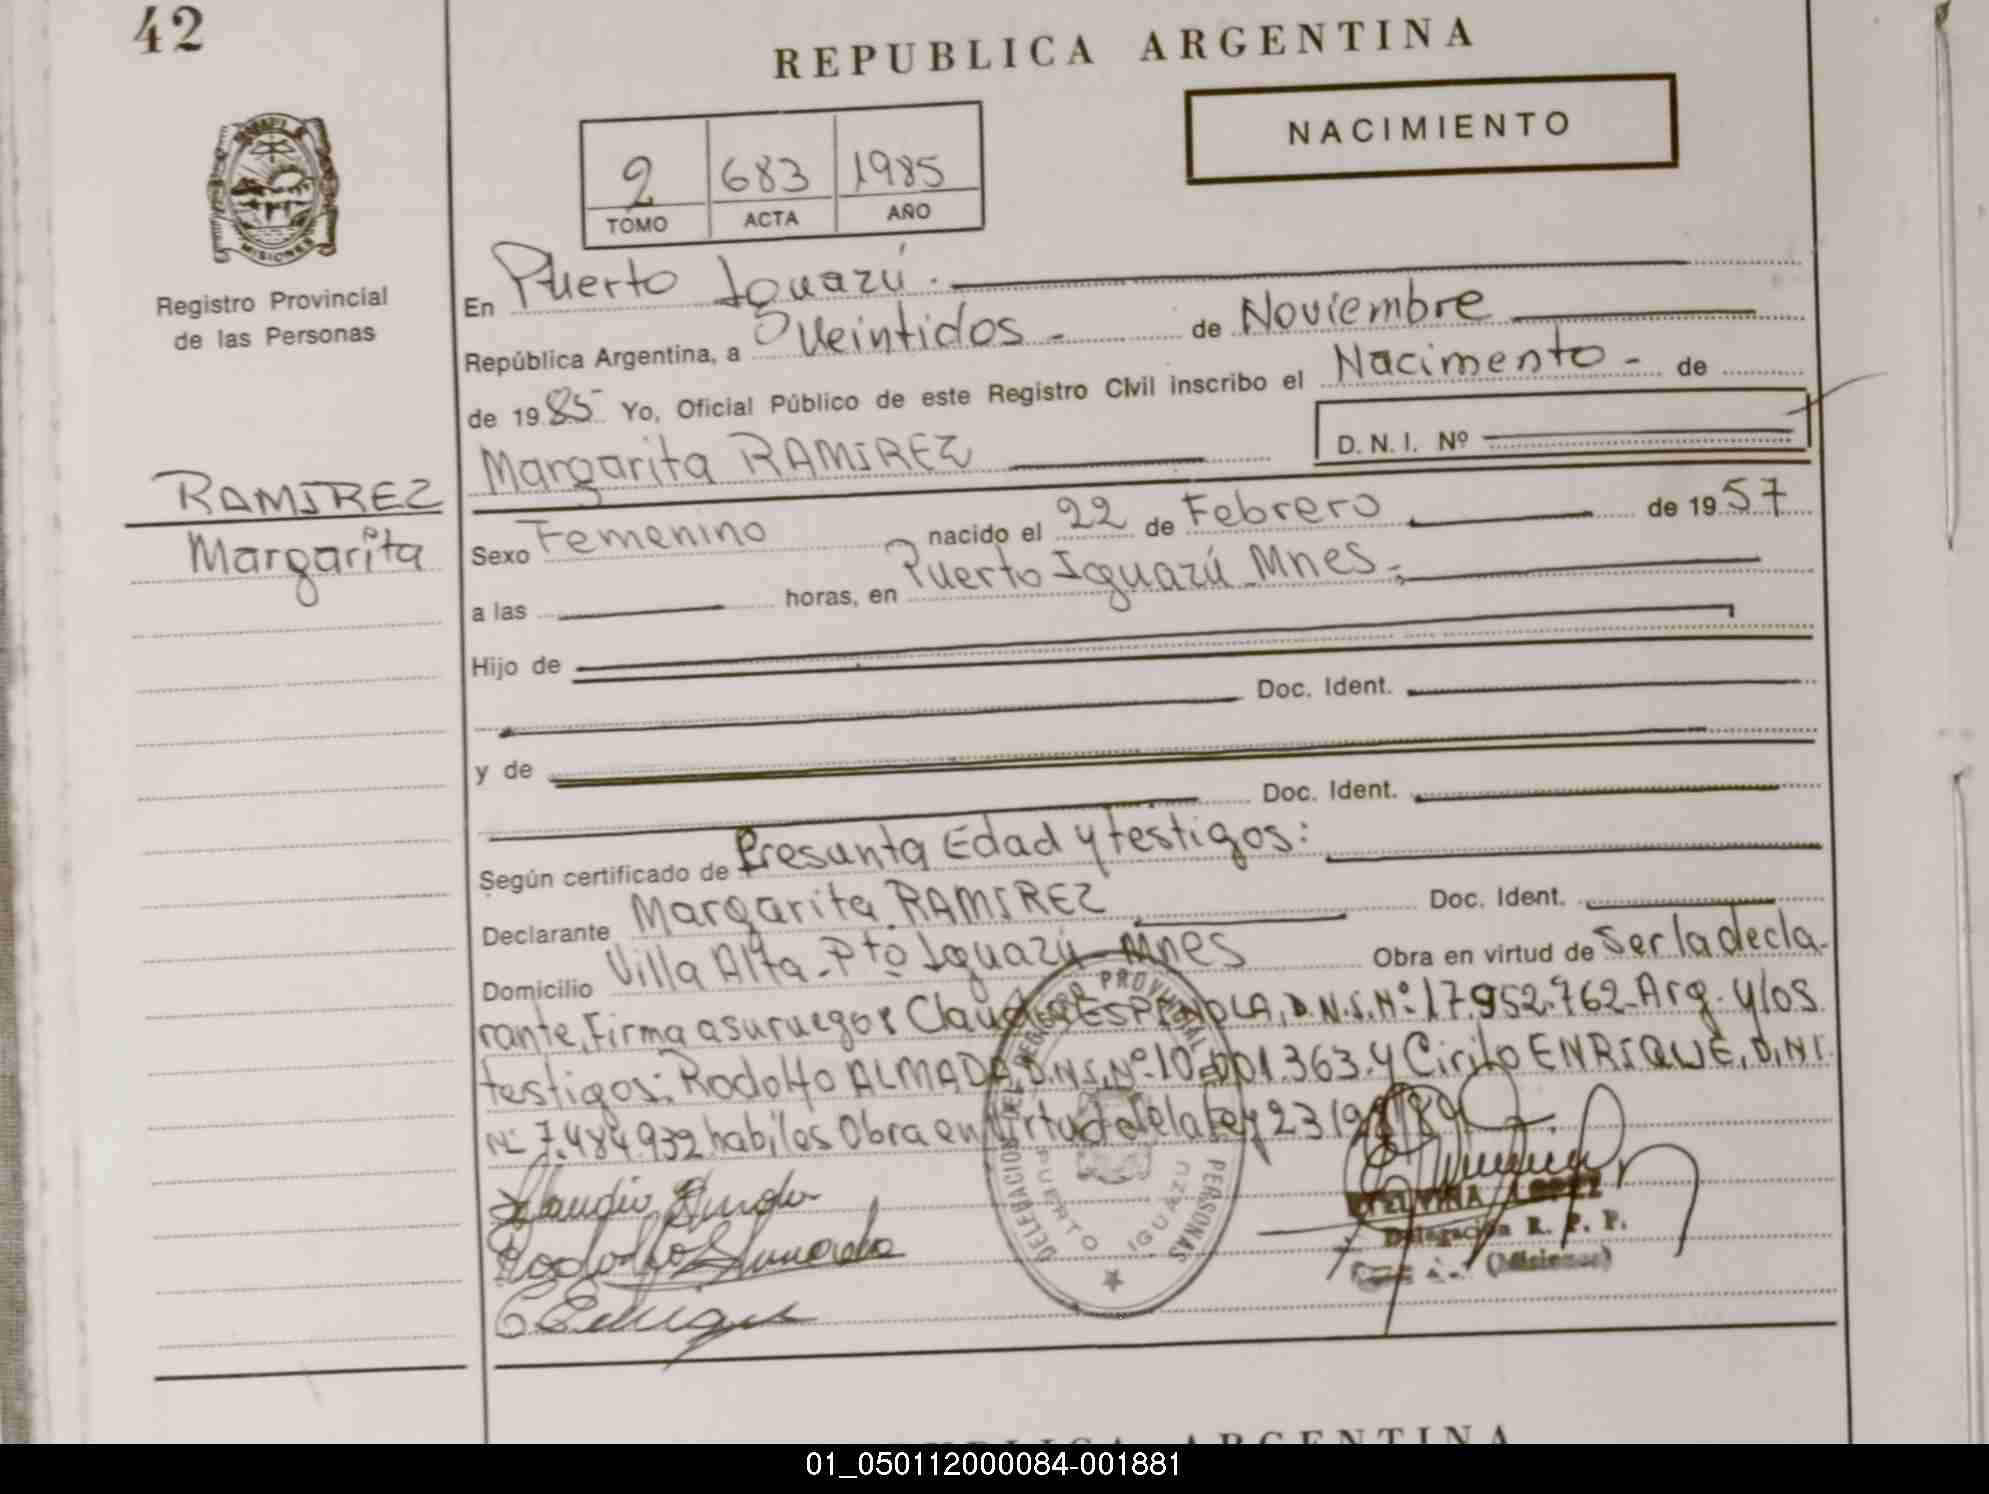 42
REPUBLICA ARGENTINA
NACIMIENTO
2 683 1985
TOMO ACTA AÑO
MISIONES
Registro Provincial
de las Personas
RAMIREZ
Margarita
En Puerto Iguazú.
República Argentina, a Veintidos - de Noviembre
de 1985 Yo, Oficial Público de este Registro Civil inscribo el Nacimento - de
Margarita RAMIREZ D. N. I. Nº
Sexo Femenino nacido el 22 de Febrero de 1957
a las horas, en Puerto Iguazú Mnes.
Hijo de
Doc. Ident.
y de
Doc. Ident.
Según certificado de Presunta Edad y testigos:
Declarante Margarita RAMIREZ Doc. Ident.
Domicilio Villa Alta - Pto Iguazú - Mnes Obra en virtud de Ser la decla-
rante, Firma a su ruego: Claudio ESPINOLA, D.N.I. Nº 17.952.762 - Arg. y los
testigos: Rodolfo ALMADA, D.N.I. Nº 10.001.363 y Cirilo ENRIQUE, D.N.I.
Nº 7.484.932 habiles Obra en Virtud de la Ley 23198/89.
DELEGACION DEL REGISTRO PROVINCIAL PERSONAS
PUERTO IGUAZU
Rodolfo Almada
C Enrique
ETELVINA LOPEZ
Delegación R. P. P.
(Misiones)
REPUBLICA ARGENTINA
01_050112000084-001881